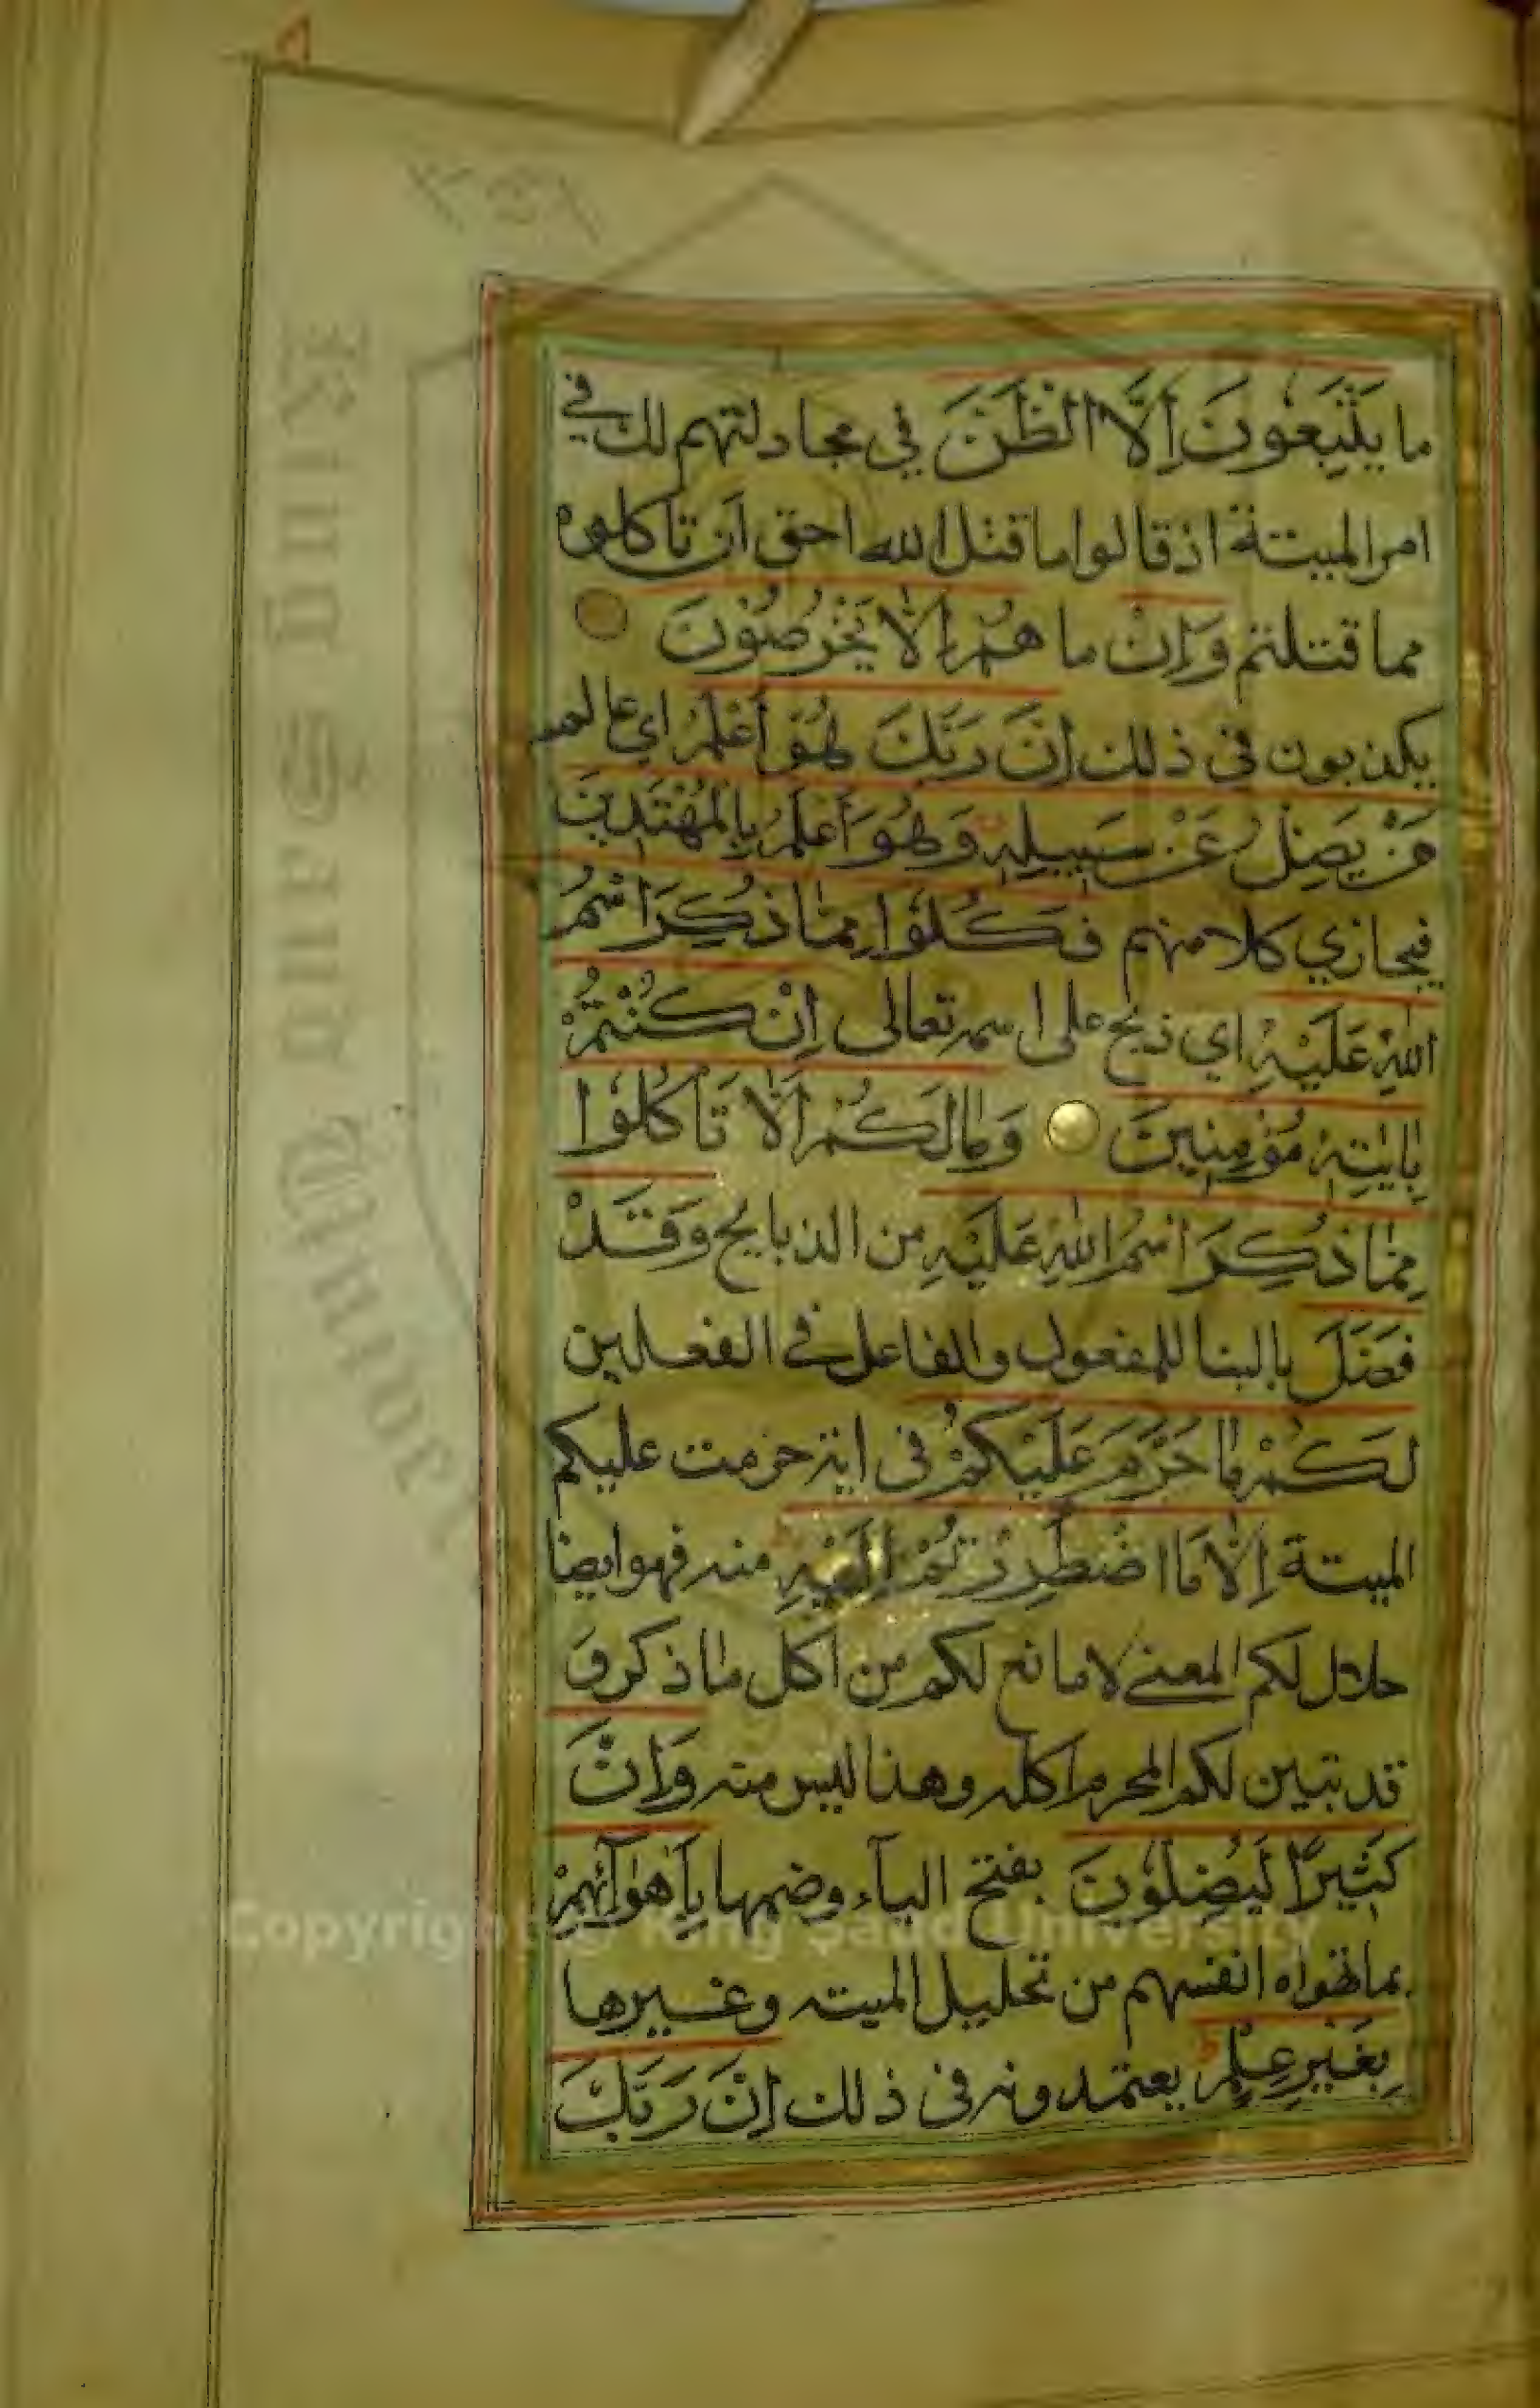 ما يَتَّبِعُونَ اِلَّا الظَّنَّ في مجادلتهم لك في
امر الميتة اذ قالوا ما قتل الله احق ان تاكلوه
مما قتلتم وَاِنْ ما هُمْ اِلَّا يَخْرُصُوْنَ
يكذبون في ذلك اِنَّ رَبَّكَ هُوَ اَعْلَمُ اي عالم
مَنْ يَضِلُّ عَنْ سَبِيلِهٖ وَهُوَ اَعْلَمُ بِالْمُهْتَدِينَ
فيجازي كلا منهم فَكُلُوْا مِمَّا ذُكِرَ اسْمُ
اللّٰهِ عَلَيْهِ اي ذبح على اسمه تعالى اِنْ كُنْتُمْ
بِاٰيٰتِهٖ مُؤْمِنِينَ وَمَا لَكُمْ اَلَّا تَاْكُلُوْا
مِمَّا ذُكِرَ اسْمُ اللّٰهِ عَلَيْهِ من الذبايح وَقَدْ
فَصَّلَ بالبنا للمفعول والفاعل في الفعلين
لَكُمْ مَا حَرَّمَ عَلَيْكُمْ في اية حرمت عليكم
الميتة اِلَّا مَا اضْطُرِرْتُمْ اِلَيْهِ منه فهو ايضا
حلال لكم المعنى لا مانع لكم من اكل ما ذكر و
قد تبين لكم المحرم اكله وهذا ليس منه وَاِنَّ
كَثِيرًا لَيُضِلُّوْنَ بفتح الياء وضمها بِاَهْوَآئِهِمْ
بما تهواه انفسهم من تحليل الميته وغيرها
بِغَيْرِ عِلْمٍ يعتمدونه في ذلك اِنَّ رَبَّكَ
King Saud University
Copyright © King Saud University